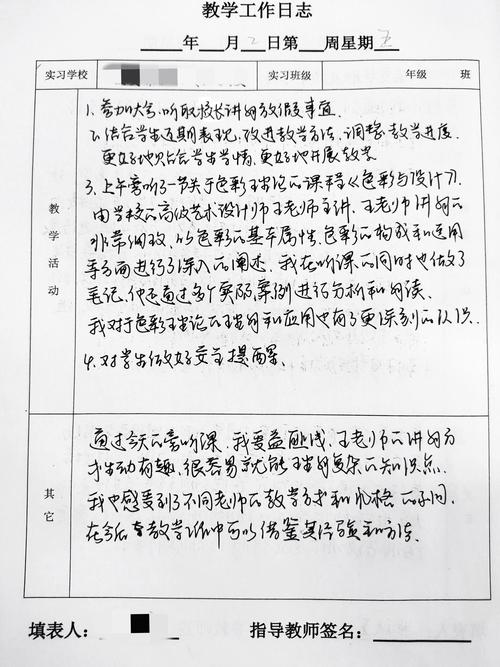 教学工作日志
年 月2日第 周星期五
实习学校 实习班级 年级 班
教学活动
1.参加大会,听取校长讲解放假事宜
2.结合学生近期表现,改进教学方法,调整教学进度,
更好地贴合学生学情,更好地开展教学
3.上午旁听了一节关于色彩理论的课程《色彩与设计》,
由学校的高级艺术设计师王老师主讲,王老师讲解的
非常细致,从色彩的基本属性,色彩的构成和运用
等方面进行了深入的阐述,我在听课的同时也做了
笔记,他还通过多个实际案例进行分析和解读,
我对于色彩理论的理解和应用也有了更深刻的认识
4.对学生做好安全提醒。
其它
通过今天的旁听课,我受益匪浅,王老师的讲解方
式生动有趣,很容易就能理解复杂的知识点
我也感受到了不同老师的教学方式和风格的不同
在今后的教学工作中可以借鉴其经验和方法。
填表人: 指导教师签名: